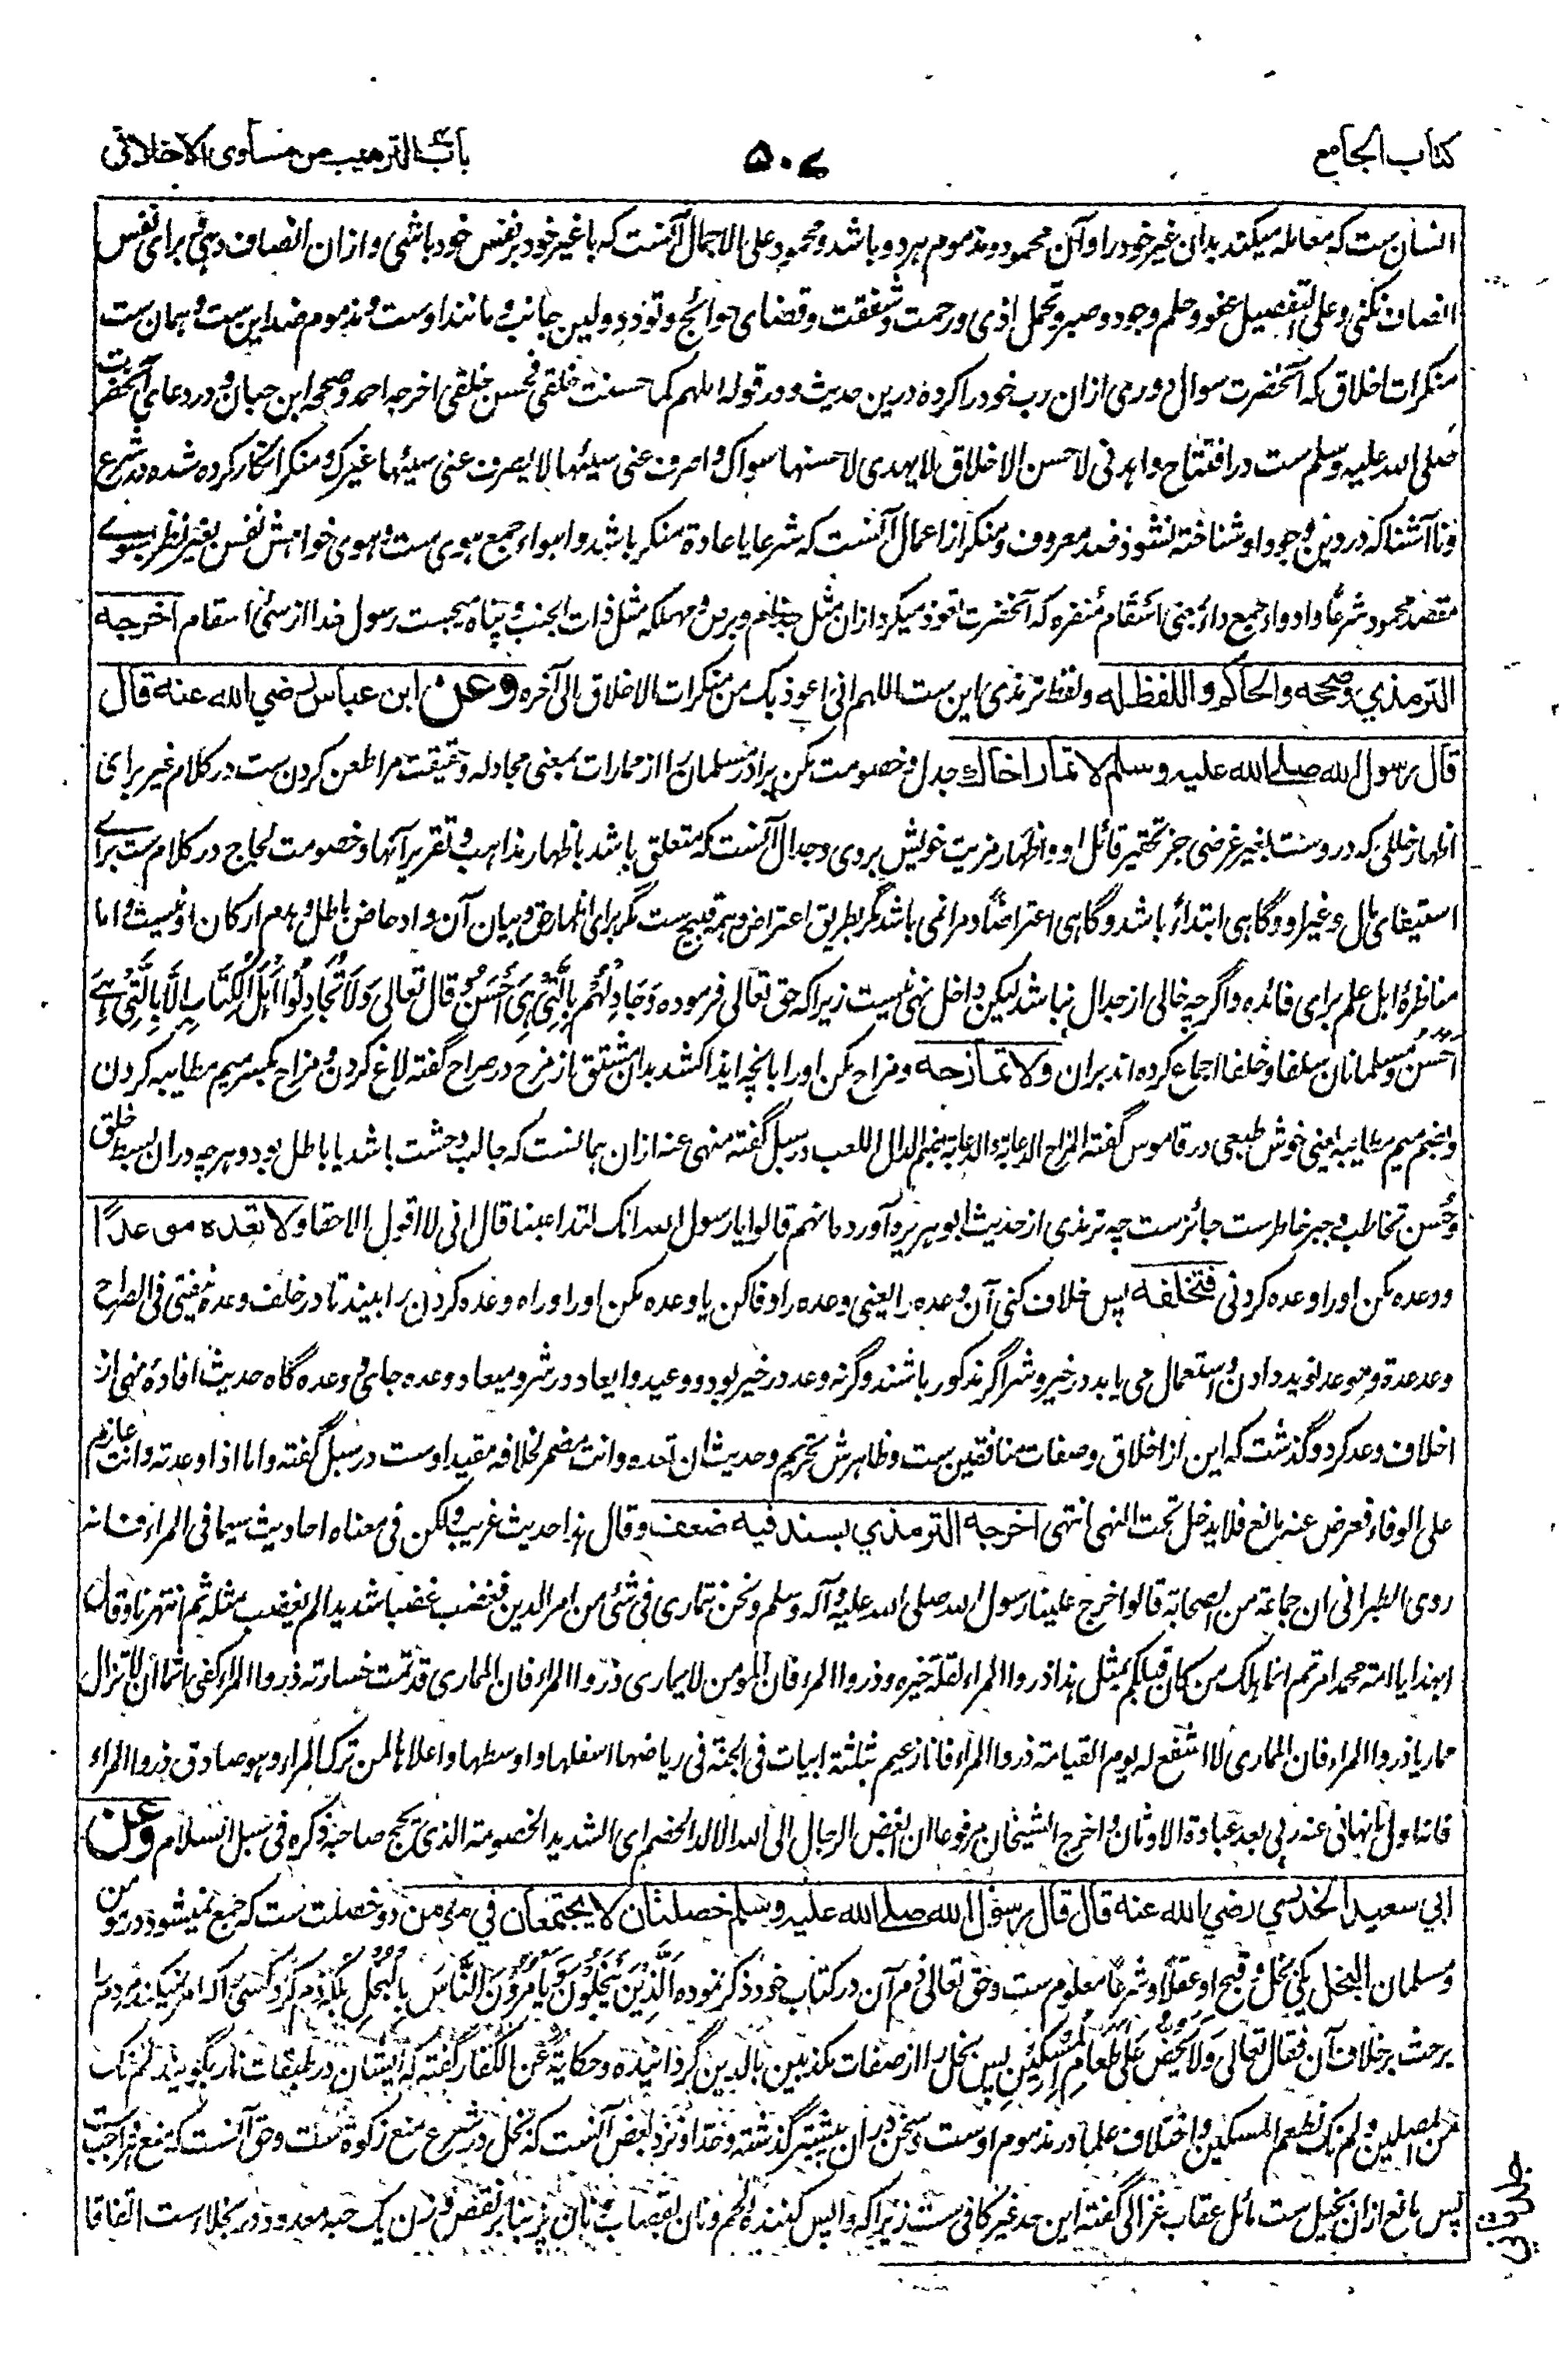 كتاب الجامع
۵۰۷
باب الترهيب من مساوى الاخلاق
انسان ست که معامله میکند بدان غیر خود را و آن محمود و مذموم هر دو باشد و محمود علی الاجمال آنست که با غیر خود بر نفس خود باشی و ازان انصاف دهی و برای نفس
انصاف نکنی و علی التفصیل عفو و حلم وجود و صبر و تحمل اذی و رحمت و شفقت و قضای حوائج و تودد و لین جانب و مانند اوست و مذموم ضد این ست و همان ست
منکرات اخلاق که آنحضرت سوال دوری ازان رب خود را کرده درین حدیث و در قوله اللهم کما حسنت خلقی فحسن خلقی اخرجه احمد و صححه ابن حبان و در دعای آنحضرت
صلی الله علیه وسلم ست در افتتاح واهدنی لاحسن الاخلاق لا یهدی لاحسنها سواک و اصرف عنی سیئها لا یصرف عنی سیئها غیرک و منکر انکار کرده شده در شرع
و ناآشنا که در دین وجود او شناخته نشود ضد معروف و منکر از اعمال آنست که شرعا یا عادة منکر باشد و اهواء جمع هوی ست و هوی خواهش نفس بغیر نظر بسوے
مقصد محمود شرعا و ادواء جمع داء بمعنی اسقام منفره که آنحضرت تعوذ میکرد ازان مثل جذام و برص و مهلکه مثل ذات الجنب و پناه میجست رسول خدا از سئ اسقام اخرجه
الترمذي وصححه والحاكم واللفظ له و لفظ ترمذی این ست اللهم انی اعوذ بک من منکرات الاخلاق الی آخره وعن ابن عباس رضي الله عنه قال
قال رسول الله صلى الله عليه وسلم لا تمار اخاك جدل و خصومت مکن برادر مسلمان را از ممارات بمعنی مجادله و حقیقت مرا طعن کردن ست در کلام غیر برای
اظهار خللی که در وست بغیر غرضی جز تحقیر قائل او و اظهار مزیت خویش بر وی و جدال آنست که متعلق باشد باظهار مذاهب و تقریر آنها و خصومت لجاج در کلام ست براے
استیفای مال و غیر او و گاهی ابتداءً باشد و گاهی اعتراضاً و مرا نمی باشد مگر بطریق اعتراض و همه قبیح ست مگر برای اظهار حق و بیان آن و ادحاض باطل و هدم ارکان او نیست و اما
مناظرۀ اهل علم برای فائده و اگرچه خالی از جدال نباشد لیکن داخل نهی نیست زیرا که حق تعالی فرموده وَجَادِلْهُمْ بِالَّتِیْ هِیَ اَحْسَنُ و قال تعالی وَلَا تُجَادِلُوْا اَهْلَ الْکِتَابِ اِلَّا بِالَّتِیْ هِیَ
اَحْسَنُ و مسلمانان سلفا و خلفا اجماع کرده اند بران ولا تمازحه و مزاح مکن او را بانچه ایذا کشد بدان مشتق از مزح در صراح گفته لاغ کردن و مزاح بکسر میم مطایبه کردن
و بضم میم مطایبه یعنی خوش طبعی در قاموس گفته المزاح الدعابة والدعابة بضم الدال اللعب در سبل گفته منهی عنه ازان همانست که جالب وحشت باشد یا باطل بود و هر چه دران بسط خلق
و حسن تخاطب و جبر خاطرست جائزست چه ترمذی از حدیث ابو هریره آورده انهم قالوا یا رسول الله انک لتداعبنا قال انی لا اقول الا حقا ولا تعده موعدًا
و وعده مکن او را وعده کردنی فتخلفه پس خلاف کنی آن وعده را یعنی وعده را وفا کن یا وعده مکن او را و راه وعده کردن را ببند تا در خلف وعده نیفتی فی الصراح
وعد عدة و موعد نوید دادن و استعمال می یابد در خیر و شر اگر مذکور باشند و گرنه وعد در خیر بود و وعید و ایعاد در شر و میعاد وعده جای و وعده گاه حدیث افادۀ نهی از
اخلاف وعد کرد و گذشت که این از اخلاق و صفات منافقین ست و ظاهرش تحریم و حدیث ان تعده وانت مضمر لخلافه مقید اوست در سبل گفته واما اذا وعدته وانت عازم
علی الوفاء فعرض عنه مانع فلا یدخل تحت النهی انتهی اخرجه الترمذي بسند فيه ضعف و قال هذا حدیث غریب ولکن فی معناه احادیث سیما فی المراء فانه
روی الطبرانی ان جماعة من الصحابة قالوا خرج علینا رسول الله صلی الله علیه و آله وسلم ونحن نتماری فی شئ من امر الدین فغضب غضبا شدیدا لم یغضب مثله ثم انتهرنا و قال
ابهذا یا امة محمد امرتم انما هلک من کان قبلکم بمثل هذا ذروا المراء لقلة خیره و ذروا المراء فان المومن لا یماری ذروا المراء فان المماری قد تمت خسارته ذروا المراء کفی اثما ان لا تزال
مماریا ذروا المراء فان المماری لا اشفع له یوم القیامة ذروا المراء فانا زعیم بثلثة ابیات فی الجنة فی ریاضها اسفلها و اوسطها و اعلاها لمن ترک المراء و هو صادق ذروا المراء
فانه اول ما نهانی عنه ربی بعد عبادة الاوثان و اخرج الشیخان مرفوعا ان ابغض الرجال الی الله الالد الخصم ای الشدید الخصومة الذی یحج صاحبه ذکره فی سبل السلام وعن
ابي سعيد الخدري رضي الله عنه قال قال رسول الله صلى الله عليه وسلم خصلتان لا يجتمعان في مؤمن دو خصلت ست که جمع نمیشود در مومن
و مسلمان البخل یکی بخل و قبح او عقلاً و شرعاً معلوم ست و حق تعالی ذم آن در کتاب خود ذکر نموده اَلَّذِیْنَ یَبْخَلُوْنَ وَیَأْمُرُوْنَ النَّاسَ بِالْبُخْلِ بلکه ذم کرد کسی را که امر نمیکند مردم را
برحث بر خلاف آن فقال تعالی وَلَا یَحُضُّ عَلٰی طَعَامِ الْمِسْکِیْنِ پس بخل را از صفات مکذبین بالدین گردانیده و حکایة عن الکفار گفته که ایشان در طبقات نار بگویند لم نک
من المصلین ولم نک نطعم المسکین و اختلاف علما در مذموم اوست و سخن دران بیشتر گذشته و حد او نزد بعض آنست که بخل در شرع منع زکوة ست و حق آنست که منع هر واجب ست
پس مانع ازان بخیل ست مائل عقاب غزالی گفته این حد غیر کافی ست زیرا که واپس کننده لحم و نان بقصاب و نان پز بنا بر نقص وزن یک حبه معدود در بخلاء ست اتفاقا